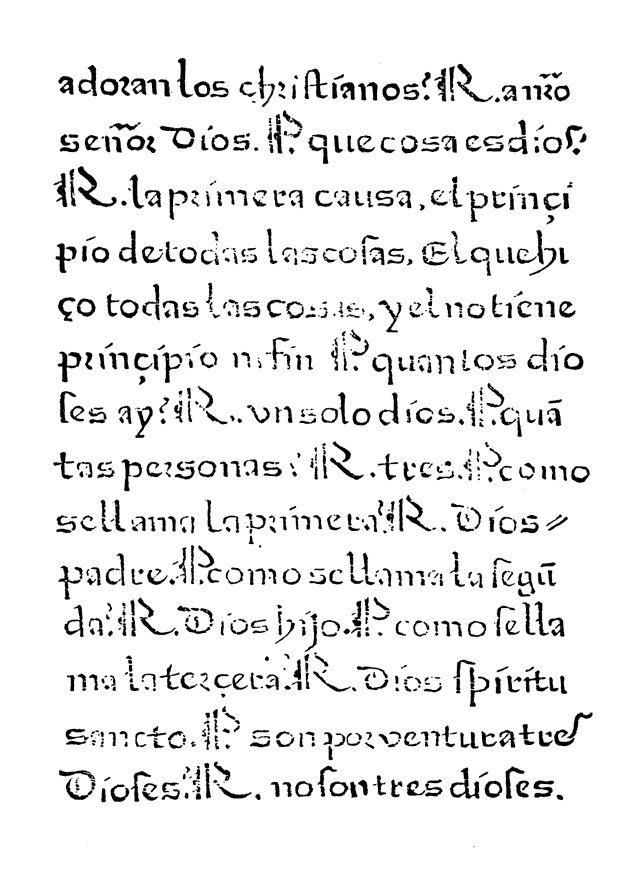 adoran los christianos? R. a nr̃o
señor Dios. P. que cosa es dios?
R. la primera causa, el prinçi
pio de todas las cosas, El que hi
ço todas las cosas, y el no tiene
prinçipio ni fin P. quantos dio
ses ay? R. vn solo dios. P. quã
tas personas? R. tres. P. como
se llama la primera? R. Dios
padre. P. como se llama la segũ
da? R. Dios hijo. P. como se lla
ma la terçera? R. Dios spiritu
sancto. P. son por ventura tres
Dioses? R. no son tres dioses.